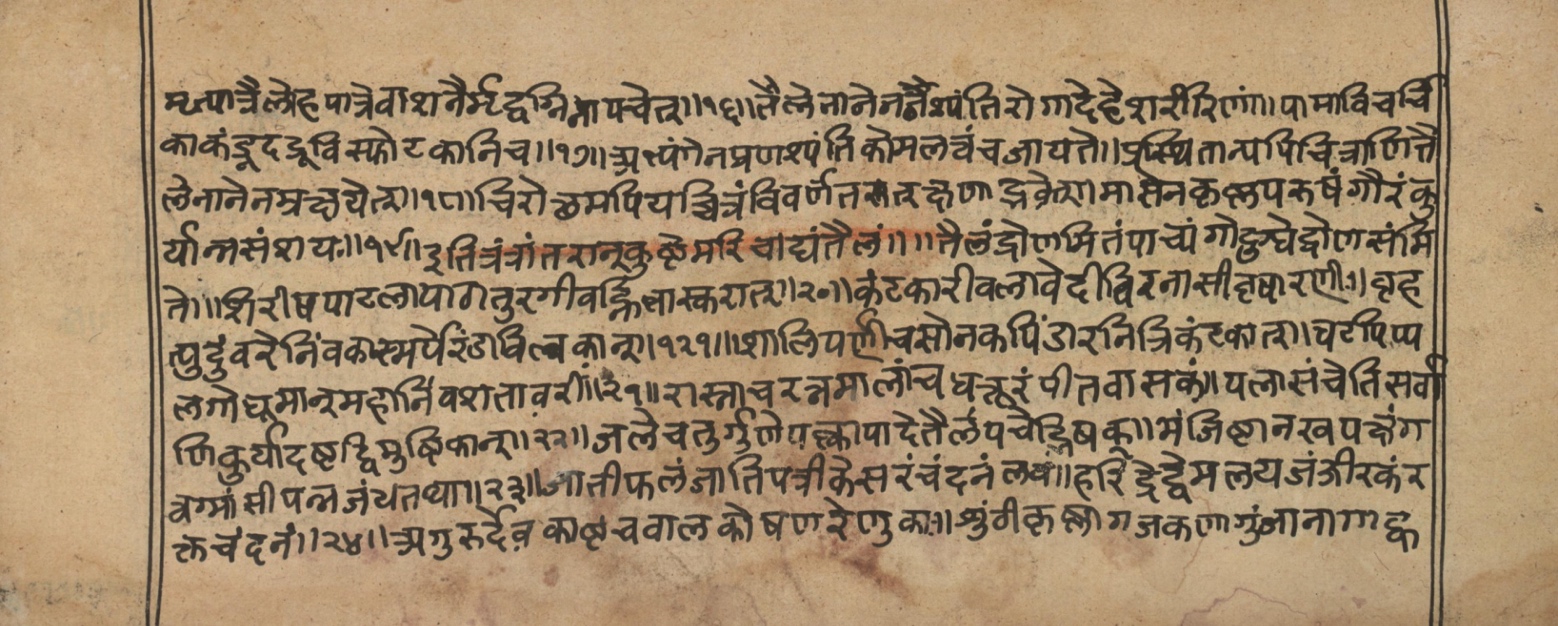 मृत्पात्रैलोहपात्रेवाशनैर्मृद्वग्निनापचेत्॥१६॥तैलेनानेननश्यंतिरोगादेहेशरीरिणां॥पामाविचर्चि
काकंडूदद्रूविस्फोटकानिच॥१७॥अभ्यंगेनप्रणश्यंतिकोमलत्वंचजायते॥प्रस्थितान्यपिचित्राणितै
लेनानेनम्रक्षयेत्॥१८॥चिरोछमपियच्चित्रंविवर्णतत्क्षणाद्भवेत्॥मासेनकृष्णपरुषंगौरंकु
र्यान्नसंशयः॥१९॥इतित्रंत्रांतरात्कुष्ठेमरिचाद्यंतैलं॥॥तैलंद्रोणमितंपाच्यंगोदुग्धेद्रोणसंमि
ते॥शिरीषपाटलापाठातुरगीवह्निभास्करात्॥२०॥कंटकारीवलावेदीद्विरनासीवृषारणीः॥बृह
त्पुदुंवरेनिंवकास्मर्पैरंडविल्वकान्॥१२१॥शालिपर्णीचसोनकपिंडारनित्रिकंटकान्॥घटपिप्प
लगोधूमान्महानिंवशतावरीं॥२१॥रास्नाचरत्नमालांचधत्तूरंपीतवासकं॥पलासंचेतिसर्वा
णिकुर्यादष्टद्विमुष्टिकान्॥२२॥जलेचतुर्गुणेपक्त्वापादेतैलंपचेद्भिषक्॥मंजिष्टानखपद्मंग
वग्मांसीपन्नजंथतथा॥२३॥जातीफलंजातिपत्रीकेसरंचंदनंलवं॥हरिद्रेद्वेमलयजंजीरकंर
क्तचंदनं॥२४॥अगुरुर्देवकाष्टचवालकोषणरेणुकाः॥शुंठीकृष्णागजकणागुंजानागाह्व